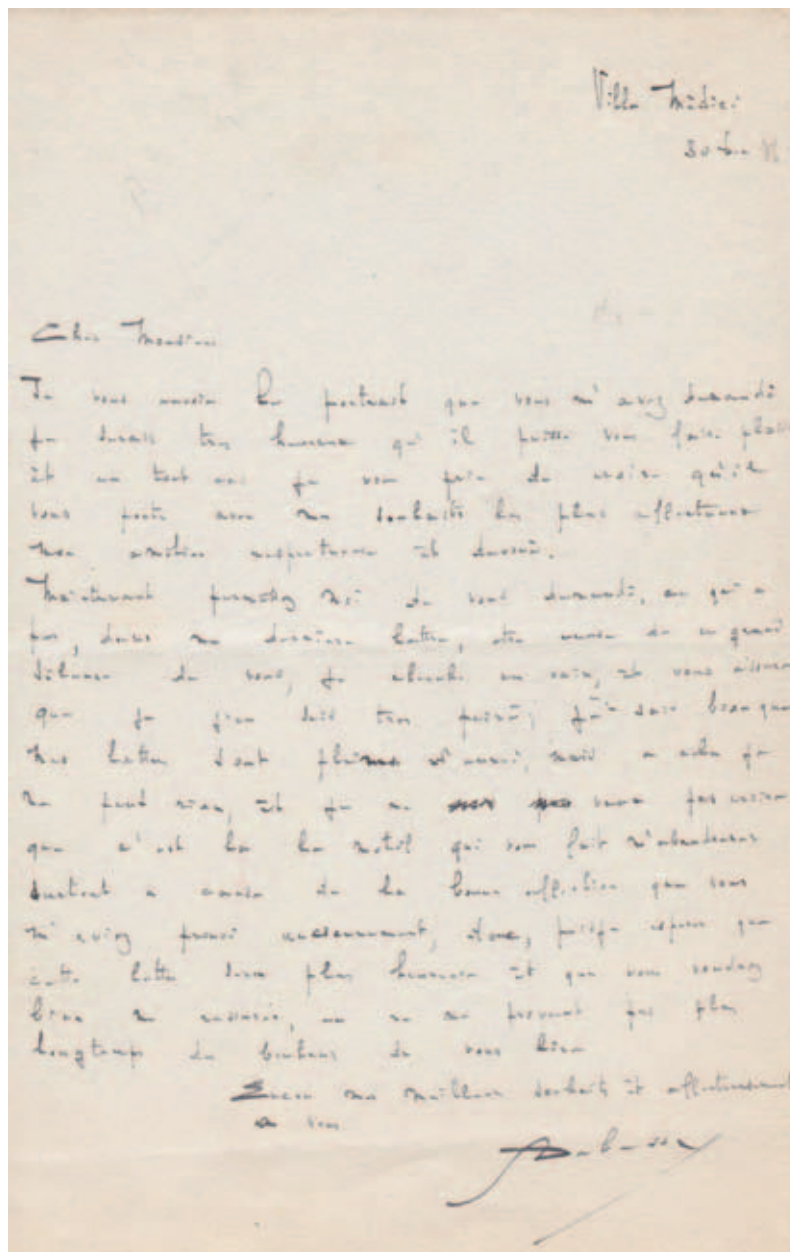 Villa Médici
30 Dec
Cher Monsieur
Je vous envoie le portrait que vous m'avez demandé
je serais très heureux qu'il puisse vous faire plaisir
et en tout cas je vous prie de croire qu'il
vous porte avec mes souhaits les plus affectueux
mon amitié respectueuse et dévouée.
Maintenant permettez moi de vous demander, ce qui a
pu, dans ma dernière lettre, être cause de ce grand
silence de vous, je cherche en vain, et vous assure
que je j'en suis très peiné; je sais bien que
mes lettres sont pleines d'ennui, mais a cela je
ne peut rien, et je ne veux pas croire
que c'est la le motif qui vous fait m'abandonner
surtout a cause de la bonne affection que vous
m'aviez prouvé anciennement, donc, puisje espérer que
cette lettre sera plus heureuse et que vous voudrez
bien me rassurer, en ne me privant pas plus
longtemps du bonheur de vous lire
Encor mes meilleurs souhaits et affectueusement
a vous
Debussy